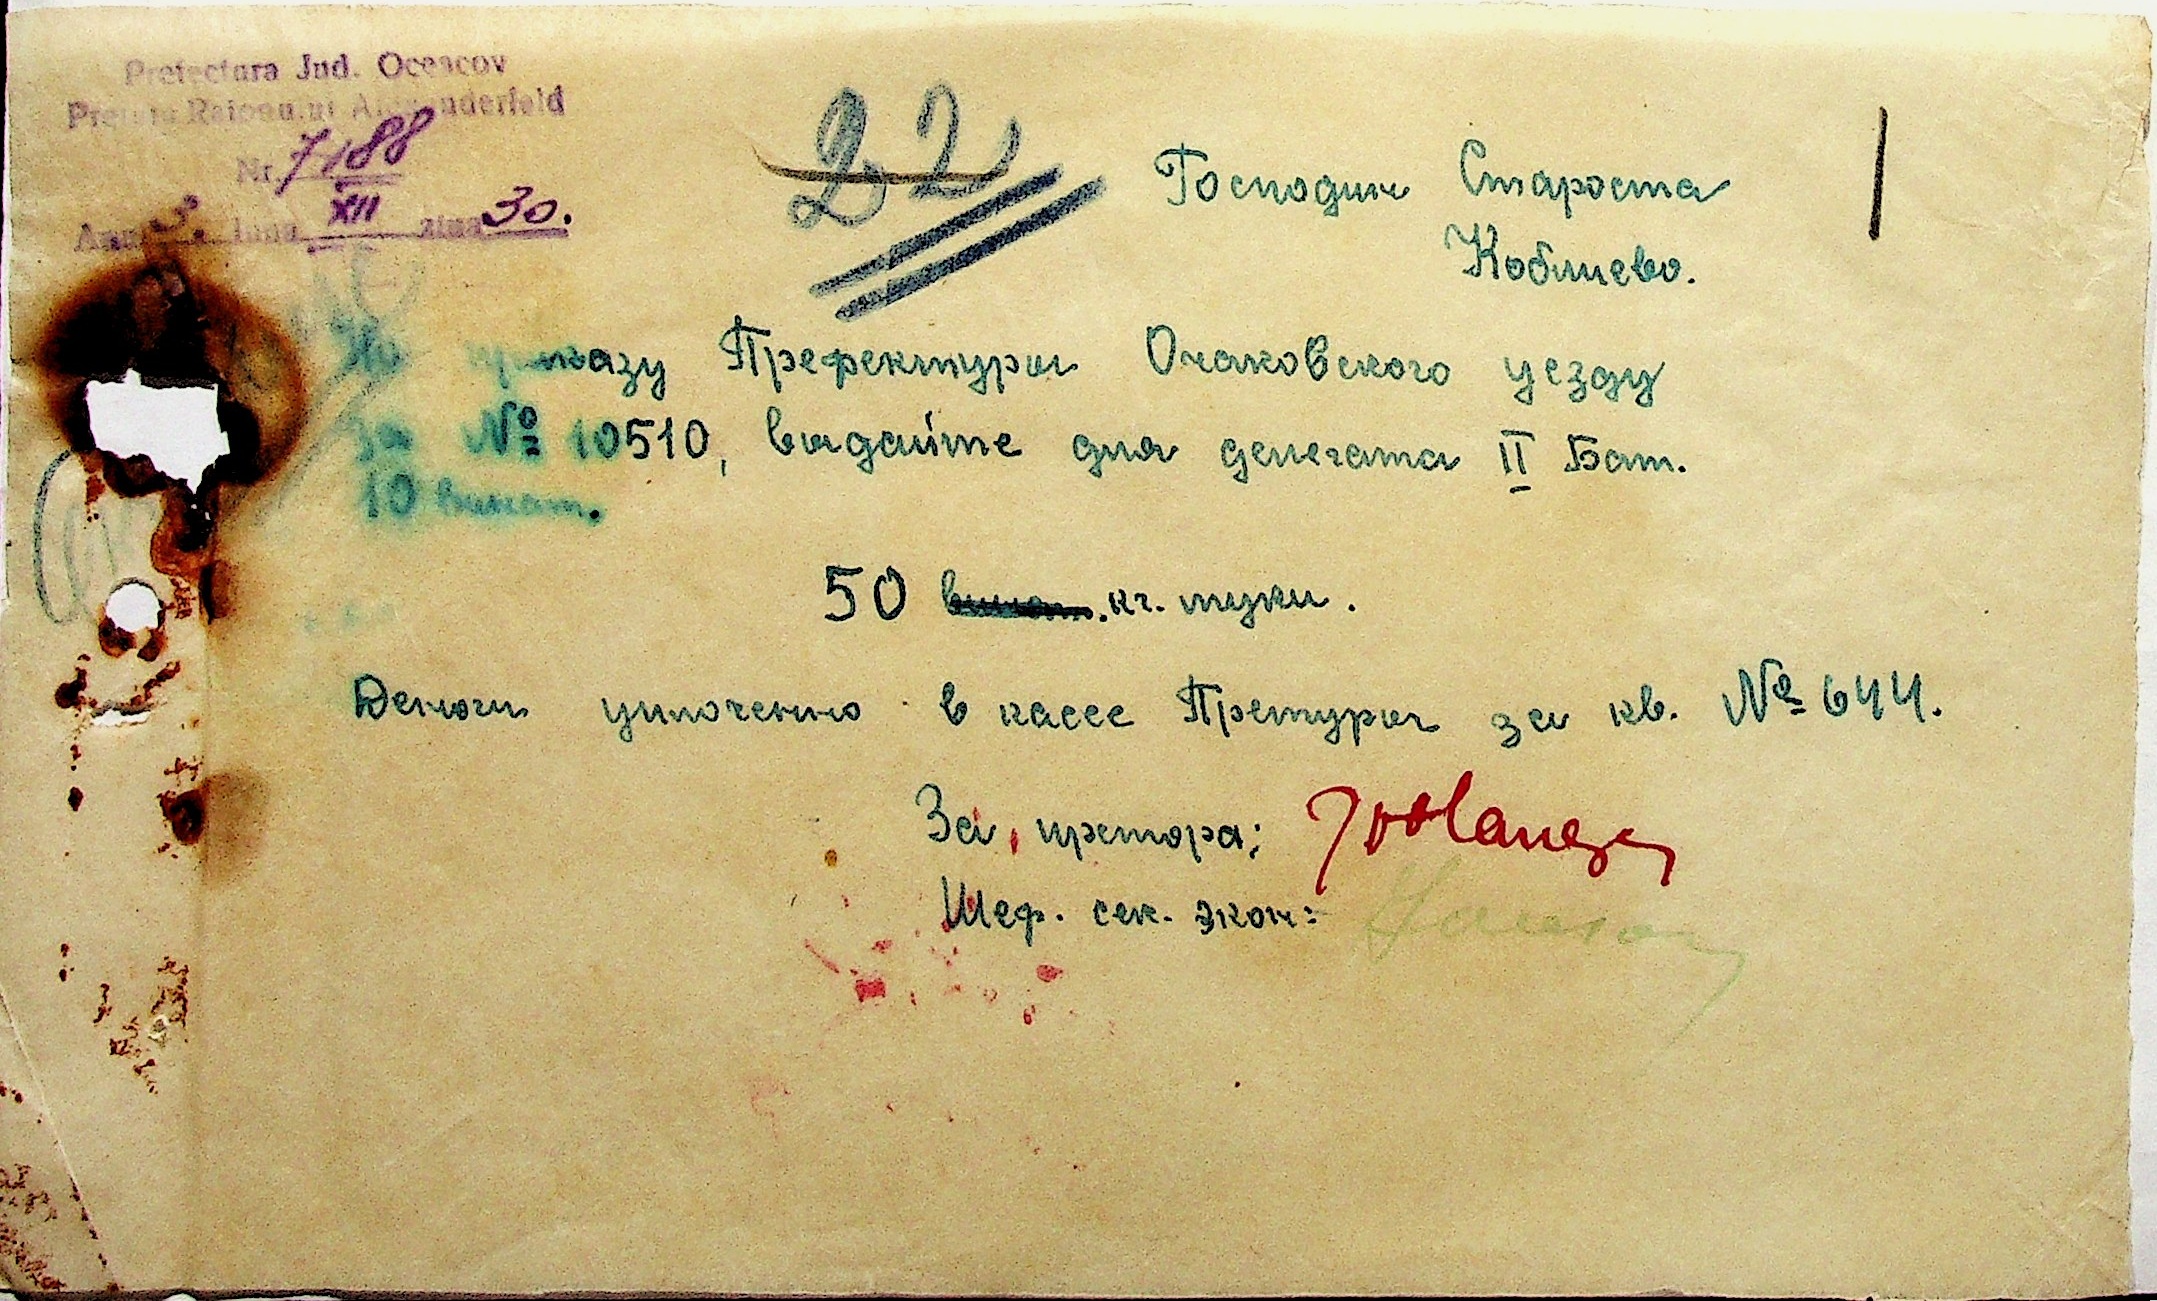 Prefectura Jud. Oceacov
Pretura Raionului Alexanderfeld
Nr. 7188
Anul luna XII ziua 30.
22
1
Господин Староста
Коблиево.
По приказу Префектуры Очаковского уезду
за № 10510, выдайте для делегата II Бат.
10
50 кг. муки.
Деньги уплоченно в кассе Претуры за кв. № 644.
За претора;
Шеф. сек. экон: